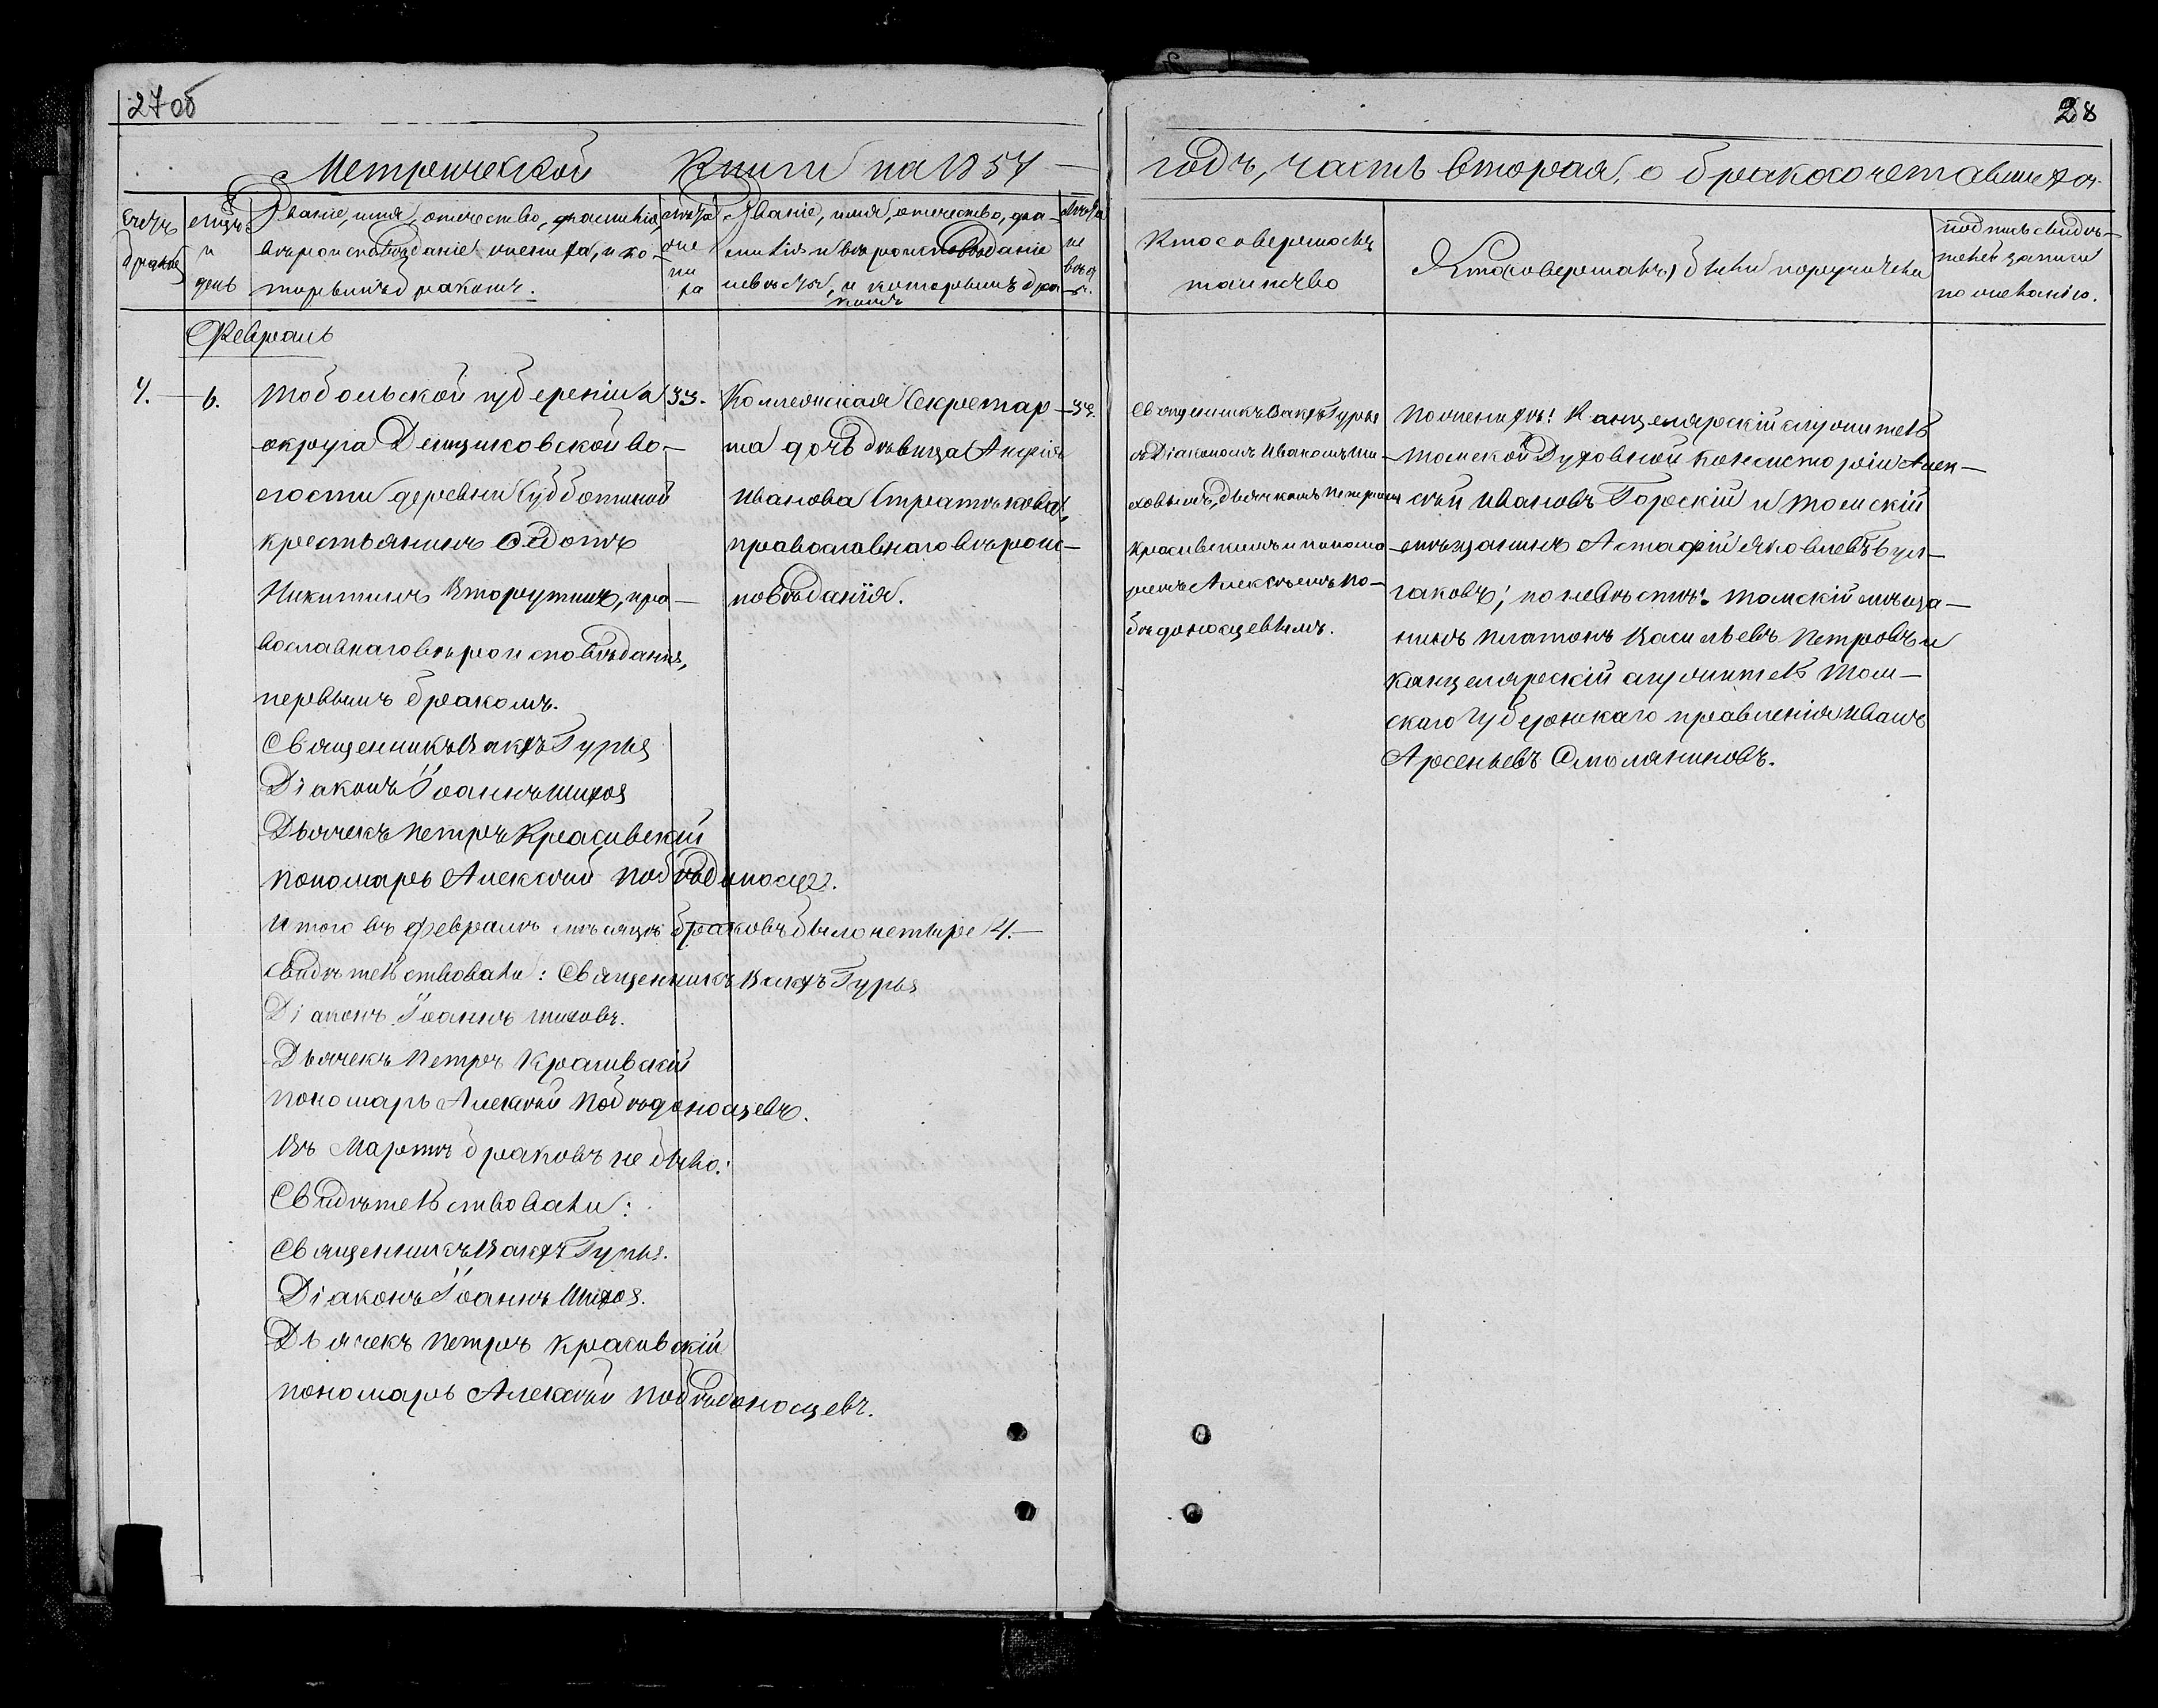 27об
28
Метрической Книги на 1854
годъ, часть вторая, о бракосочетавшихся.
Счетъ браковъ
мѣсяцъ и день
Званіе, имя, отечество, фамилія,
вѣроисповѣданіе жениха, и ко-
торымъ бракомъ.
лѣта жениха
Званіе, имя, отечество, фа-
милія и вѣроисповѣданіе
невѣсты, и которымъ бра-
комъ
лѣта невѣс.
Кто совершалъ
таинство
Кто были поручители
подпись свидѣ-
телей записи
по желанію.
Февраль
4. 6.
Тобольской губерніи
33.
округа
Во-
лости деревни Субботиной
крестьянинъ Федотъ
Никитинъ Вторушинъ, пра-
вославнаго вѣроисповѣданія,
первымъ бракомъ.
Коллежская Секретар-
33.
ша дочь дѣвица
Иванова
православнаго вѣроис-
повѣданія.
Священникъ Вакхъ Гурьев
съ Діакономъ Иваномъ Ши-
ховымъ, дьячкомъ Петромъ
Красивскимъ и понома-
ремъ Алексѣемъ По-
бѣдоносцевымъ.
По женихѣ: Канцелярскій служитель
Томской Духовной Консисторіи Алек-
сѣй Ивановъ Горскій и Томскій
мѣщанинъ Астафій Яковлевъ Бул-
гаковъ; по невѣстѣ: Томскій мѣща-
нинъ Платонъ Васильевъ Петровъ и
канцелярскій служитель Том-
скаго Губернскаго правленія Иванъ
Арсеньевъ Смоляниновъ.
Священникъ Вакхъ Гурьев
Діаконъ Іоаннъ Шихов
Дьячекъ Петръ Красивскій
пономарь Алексѣй Побѣдоносц.
Итого въ февралѣ мѣсяцѣ браковъ было четыре 4.
Свидѣтельствовали: Священникъ Вакхъ Гурьев
Діаконъ Іоаннъ Шиховъ.
Дьячекъ Петръ Красивскій
пономарь Алексѣй Побѣдоносцевъ.
Въ Мартѣ браковъ не было.
Свидѣтельствовали:
Священникъ Вакхъ Гурьев.
Діаконъ Іоаннъ Шихов.
Дьячекъ Петръ Красивскій
пономарь Алексѣй Побѣдоносцевъ.